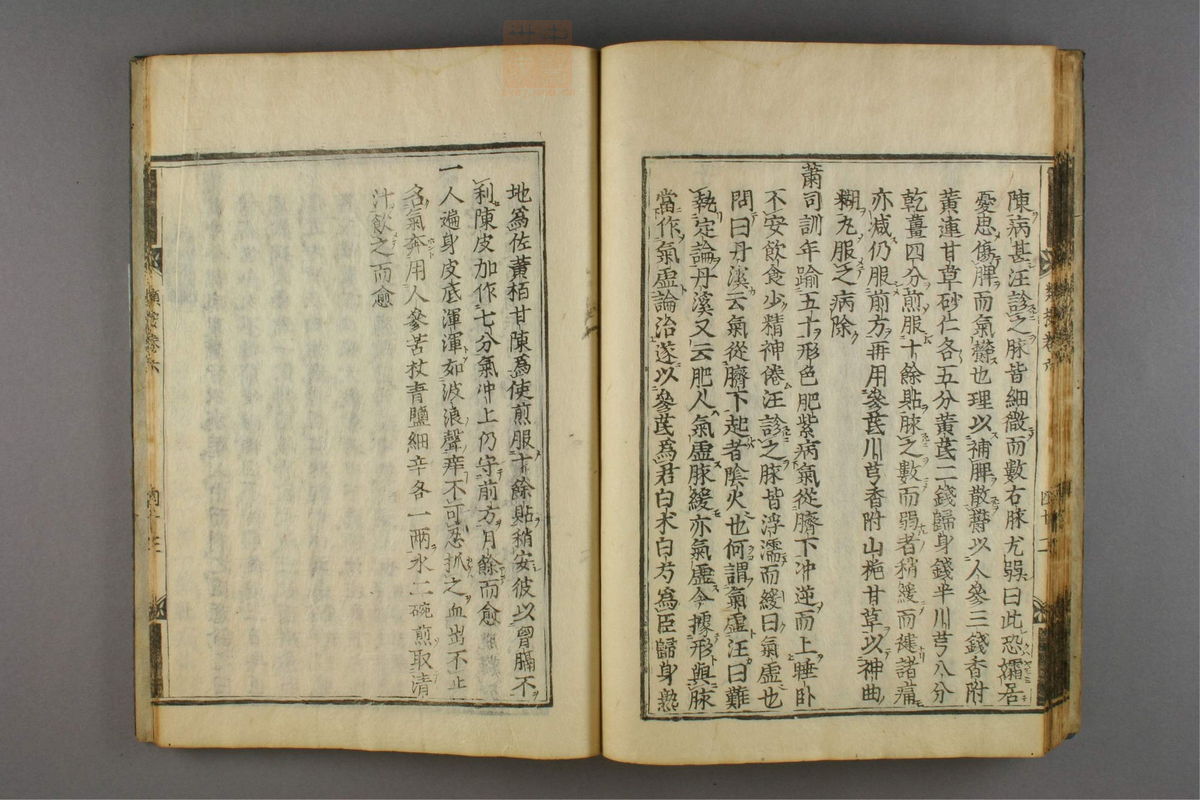 陳病甚汪診之脉皆細微而數右脉尤弱曰此恐孀居
憂思傷脾而氣欝也理以補脾散欝以人參三錢香附
黄連甘草砂仁各五分黄芪二錢歸身錢半川芎八分
乾薑四分煎服十餘貼脉之數而弱者稍緩而健諸痛
亦减仍服前方再用參芪川芎香附山梔甘草以神曲
糊丸服之病除
蕭司訓年踰五十形色肥紫病氣從臍下冲逆而上睡卧
不安飲食少精神倦汪診之脉皆浮濡而緩曰氣虚也
問曰丹溪云氣從臍下起者陰火也何謂氣虚汪曰難
執定論丹溪又云肥人氣虚脉緩亦氣虚今據形與脉
當作氣虚論治遂以參芪爲君白术白芍爲臣歸身熟
地爲佐黄栢甘陳爲使煎服十餘貼稍安彼以胷膈不
利陳皮加作七分氣冲上仍守前方月餘而愈
一人遍身皮底渾渾如波浪聲痒不可忍抓之血出不止
名氣奔用人參苦杖青鹽細辛各一兩水二碗煎取清
汁飲之而愈